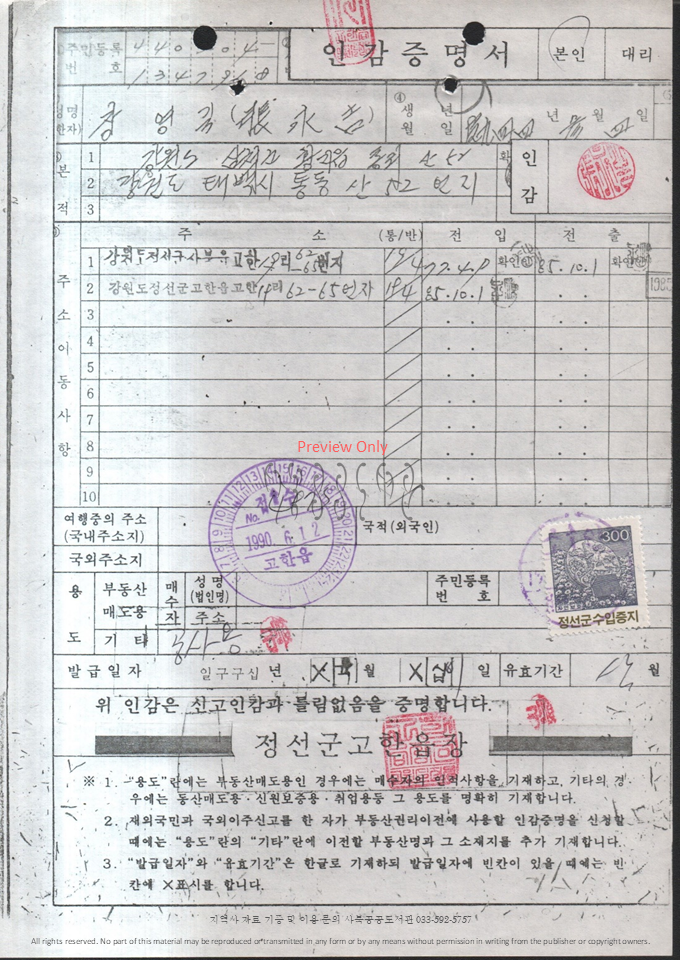 주민등록 440204-
번 호 1347948
인감증명서
본인 대리
성명
(한자) 장영길(張永吉)
④ 생 년
월 일
년 월 일
본 적
1 강원도 삼척군
2 강원도 태백시 통동 산 52 번지
3
인 감
주 소 (통/반) 전 입 전 출
주소이동사항
1 강원도정선군사북읍고한19리 62-65번지 19/4 77.4.9 확인인 85.10.1 확인인
2 강원도정선군고한읍고한19리 62-65번지 19/4 85.10.1
1985
3
4
5
6
7
8
9
10
Preview Only
여행중의 주소
(국내주소지)
국적(외국인)
국외주소지
No.
접수
1990 6. 12
고한읍
300
정선군수입증지
용 도
부동산
매도용
매수자
성 명
(법인명)
주소
주민등록
번 호
기 타 농사용
발급일자 일구구십 년 X 월 X십 일 유효기간 월
위 인감은 신고인감과 틀림없음을 증명합니다.
정선군고한읍장
※ 1. "용도"란에는 부동산매도용인 경우에는 매수자의 인적사항을 기재하고, 기타의 경
우에는 동산매도용·신원보증용·취업용등 그 용도를 명확히 기재합니다.
2. 재외국민과 국외이주신고를 한 자가 부동산권리이전에 사용할 인감증명을 신청할
때에는 "용도"란의 "기타"란에 이전할 부동산명과 그 소재지를 추가 기재합니다.
3. "발급일자"와 "유효기간"은 한글로 기재하되 발급일자에 빈칸이 있을 때에는 빈
칸에 X표시를 합니다.
지역사 자료 기증 및 이용 문의 사북공공도서관 033-592-5757
All rights reserved. No part of this material may be reproduced or transmitted in any form or by any means without permission in writing from the publisher or copyright owners.